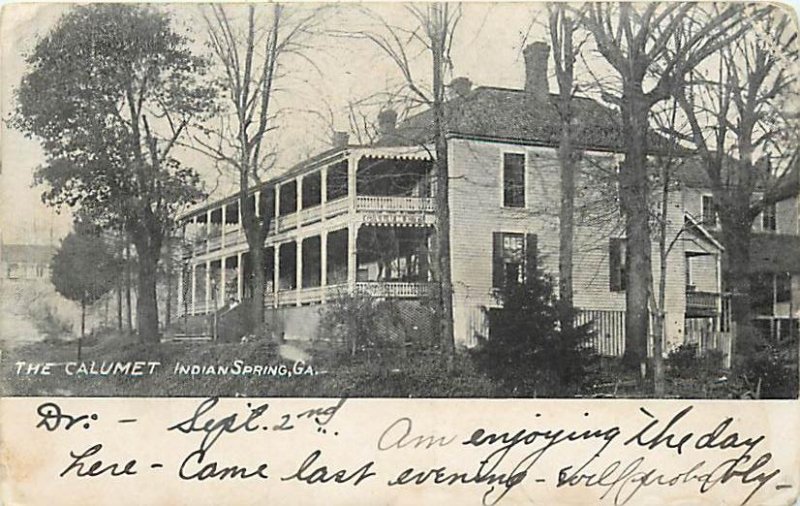 CALUMET
THE CALUMET INDIAN SPRING, GA.
Dr: - Sept. 2nd. Am enjoying the day
here - Came last evening - will probably -